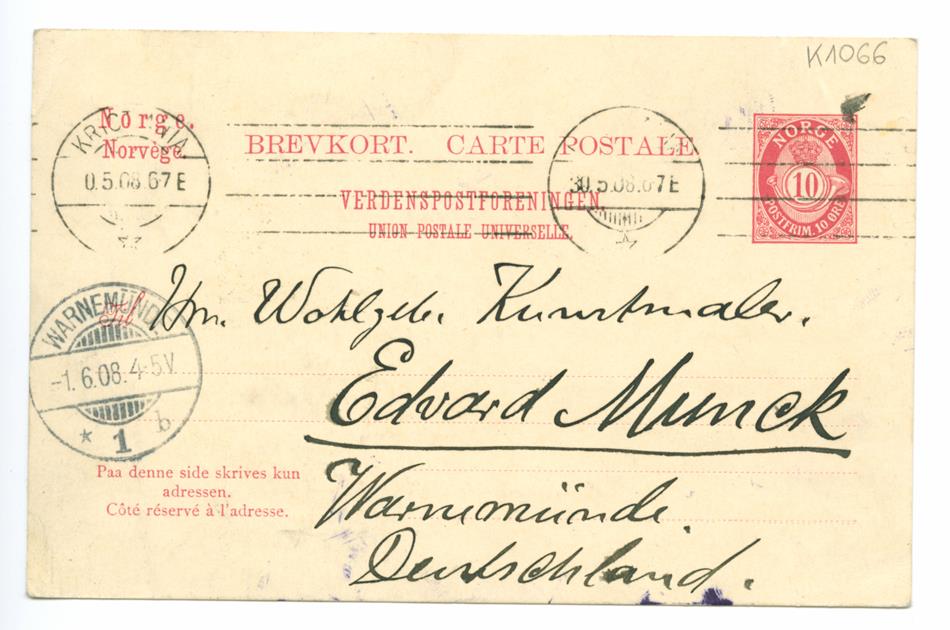 K1066
Norge.
Norvège.
BREVKORT. CARTE POSTALE
VERDENSPOSTFORENINGEN.
UNION POSTALE UNIVERSELLE.
0.5.08.67E
30.5.08.67E
NORGE
10
POSTFRIM. 10 ØRE
Til
WARNEMÜNDE
-1.6.08.4-5V.
* 1 b
Hrn. Wohlgeb. Kunstmaler.
Edvard Munck
Warnemünde.
Deutschland.
Paa denne side skrives kun
adressen.
Côté réservé à l'adresse.